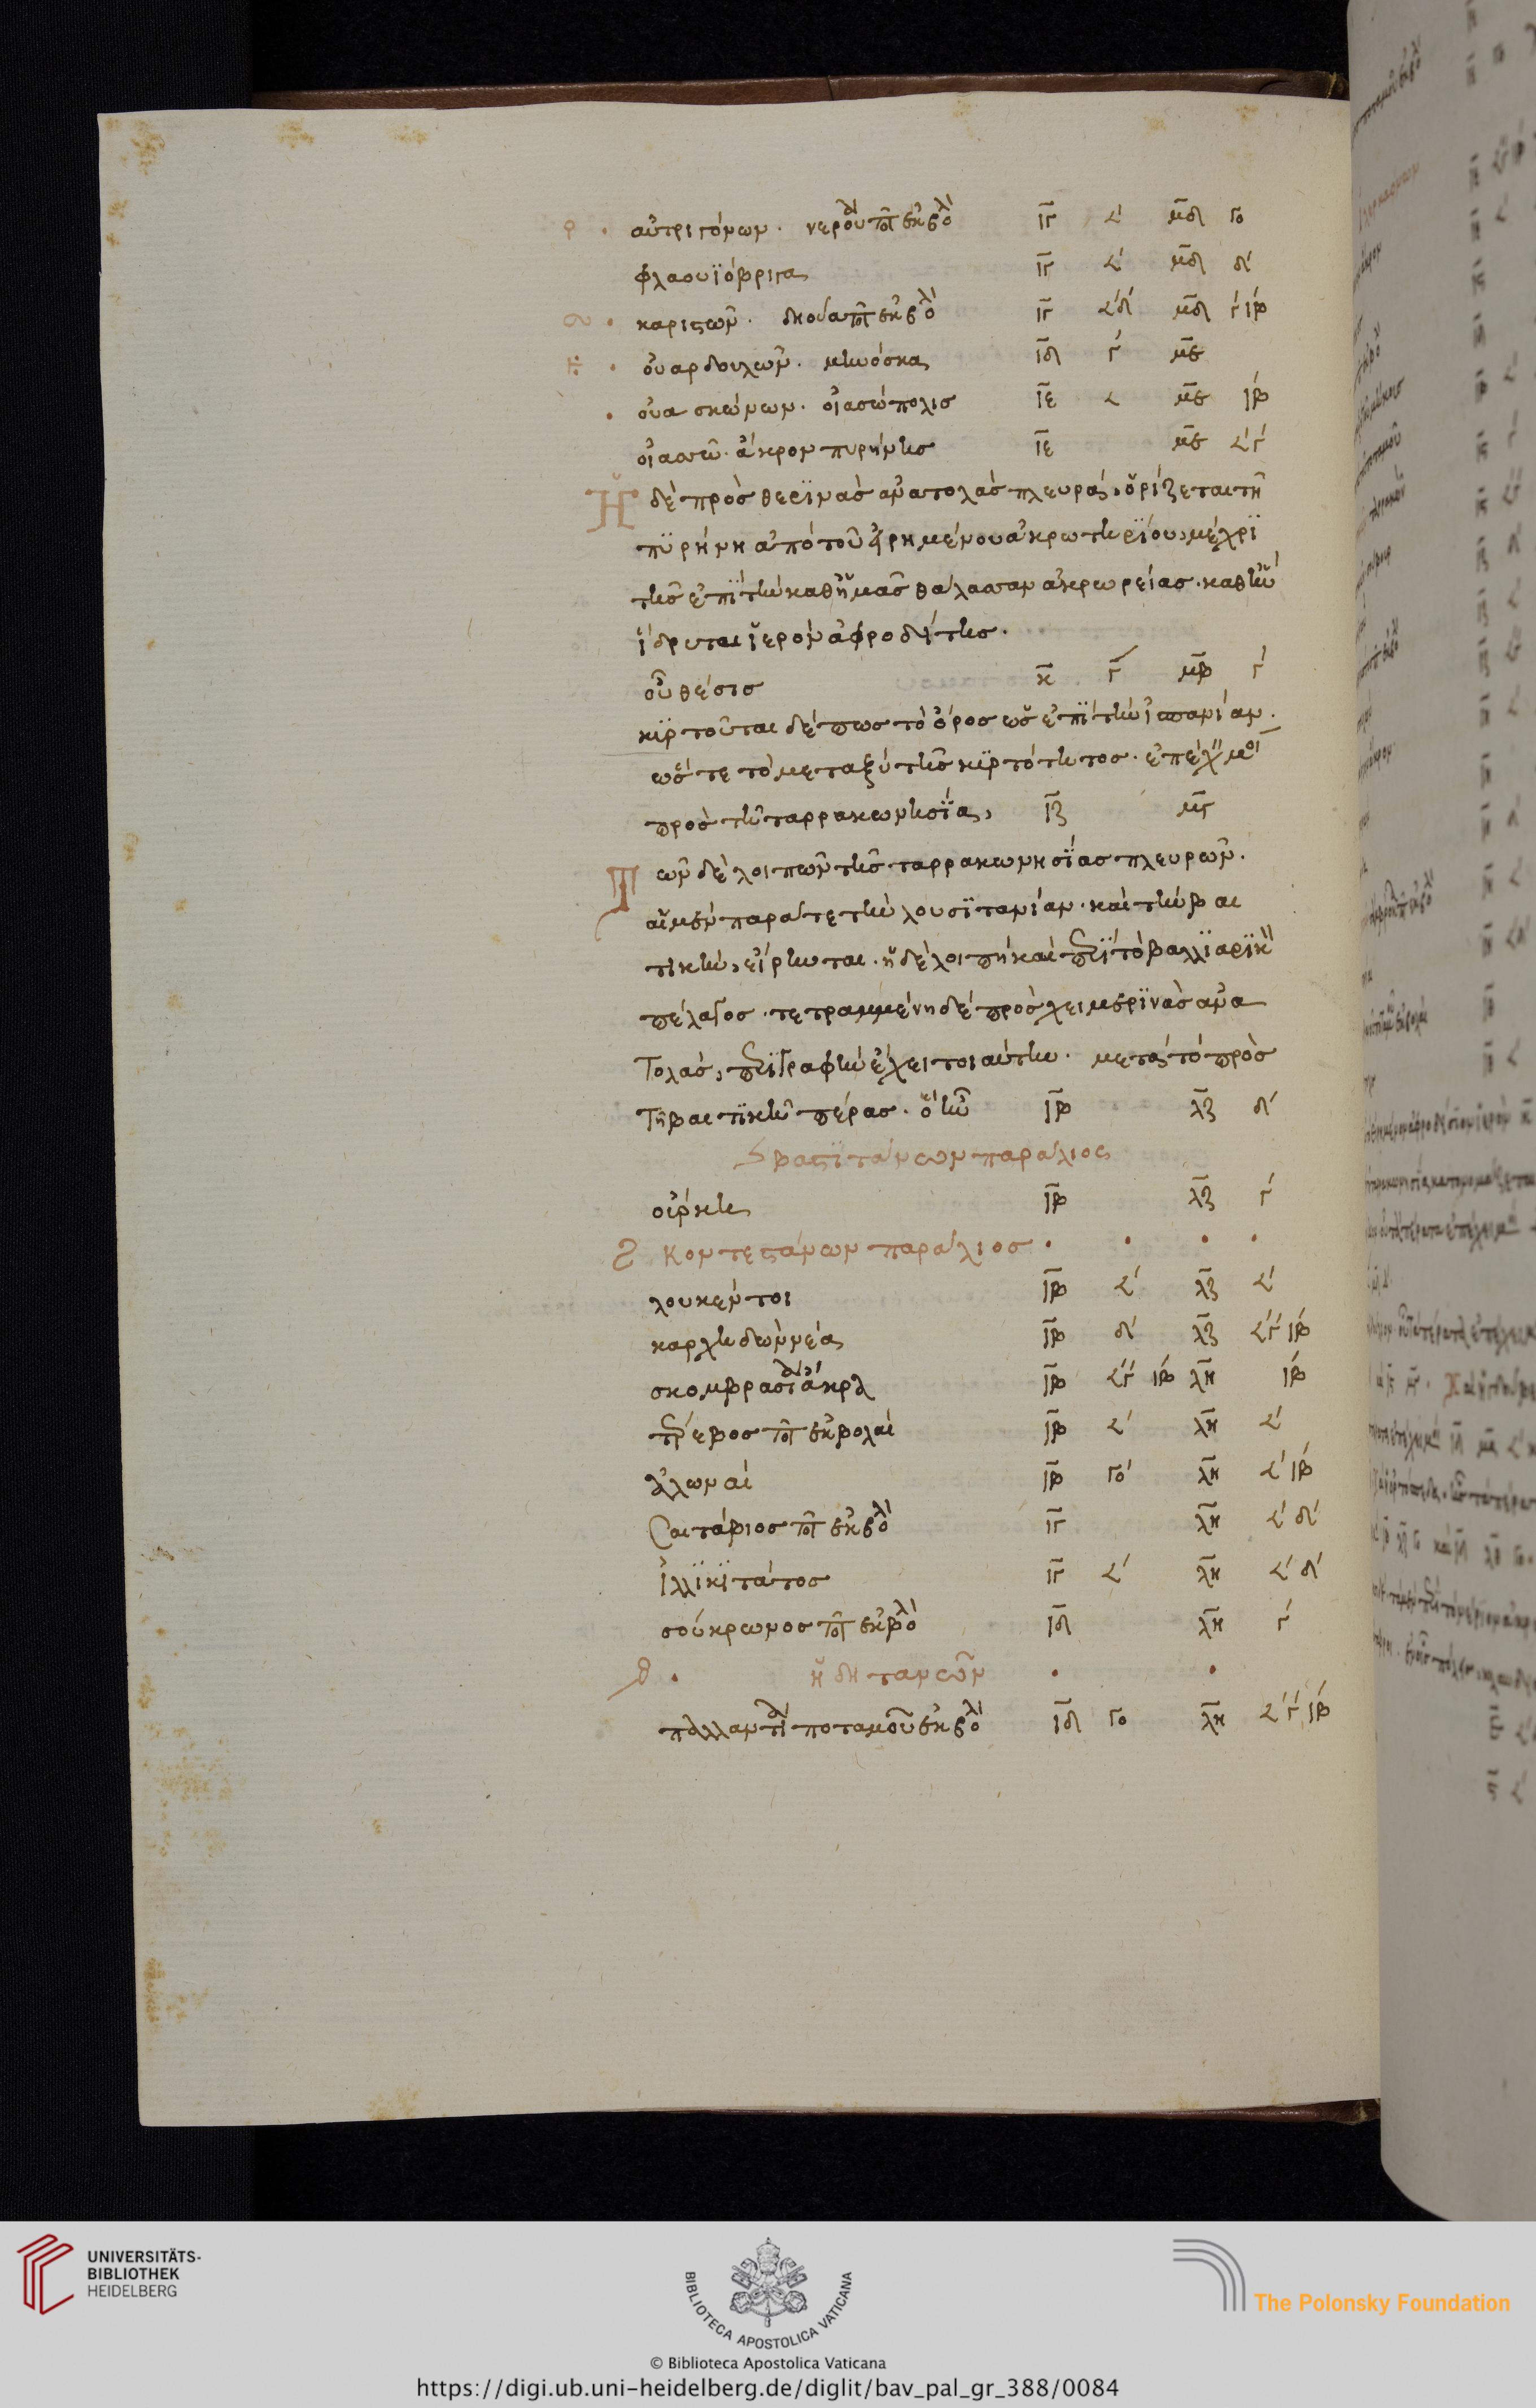 αὐτριγόνων · νερούα ποτ ἐκβολ ιγ ∠ʹ μδ γο
φλαουϊόβριγα ιγ ∠ʹ μδ δʹ
καριστῶν · δηούα ποτ ἐκβολ ιγ ∠ʹδʹ μδ γʹιβ
οὐαρδουλῶν · μηνόσκα ιδ γʹ με
οὐασκώνων · οἰασώπολισ ιε ∠ με ιβ
οἰασσῶ· ἄκρον πυρήνησ ιε με ∠ʹγʹ
Ἡ δὲ πρὸσ θερϊνὰσ ἀνατολὰσ πλευρά, ὁρίζεται τῆ
πϋρήνη ἀπὸ τοῦ εἰρημένου ἀκρωτηρϊου, μέχρϊ
τῆσ ἐπϊ τὴν καθἡμᾶσ θάλασσαν ἀκρωρείασ · καθ ἣν
ἵδρυται ἱερὸν ἀφροδίτησ ·
οὗ θέσισ κ γʹ μβ γʹ
κϋρτοῦται δέ πωσ τὸ ὄροσ ὡσ ἐπϊ τὴν ἱσπανίαν ·
ὥστε τὸ μεταξὺ τῆσ κϋρτότητοσ · ἐπέχει μοι
πρὸσ τῆ ταρρακωνησϊα, ιζ μγ
Τῶν δὲ λοιπῶν τῆσ ταρρακωνησϊασ πλευρῶν ·
αἱ μὲν παρά τε τὴν λουσϊτανίαν · καὶ τὴν βαι
τικὴν, εἴρηνται · ἡ δὲ λοιπὴ καὶ περϊ τὸ βαλλϊαρϊκὸν
πέλαγοσ · τετραμμένη δὲ πρὸσ χειμερϊνὰσ ἀνα
τολάσ, περϊγραφὴν ἔχει τοιαύτην · μετὰ τὸ πρὸσ
τῆ βαιτϊκῆ πέρασ · ὃ ἦν ιβ λζ δʹ
βαστϊτάνων παράλιος
οὔρκη ιβ λζ γʹ
Κοντεστάνων παράλιοσ · · · ·
λουκέντοι ιβ ∠ʹ λζ ∠ʹ
καρχηδὼν νέα ιβ δʹ λζ ∠ʹγʹιβ
σκομβραρία ἄκρα ιβ ∠ʹγʹ ιβ λη ιβ
τέρεβοσ ποτ ἐκβολαὶ ιβ ∠ʹ λη ∠ʹ
ἀλωναί ιβ γοʹ λη ∠ʹιβ
Σαιτάβιοσ ποτ ἐκβολ ιγ λη ∠ʹδʹ
ἰλλϊκϊτάτοσ ιγ ∠ʹ λη ∠ʹδʹ
σούκρωνοσ ποτ ἐκβολ ιδ λη γʹ
ἡδητανῶν · ·
παλλαντία ποταμοῦ ἐκβολ ιδ γο λη ∠ʹγʹιβ
UNIVERSITÄTS-
BIBLIOTHEK
HEIDELBERG
BIBLIOTECA APOSTOLICA VATICANA
The Polonsky Foundation
© Biblioteca Apostolica Vaticana
https://digi.ub.uni-heidelberg.de/diglit/bav_pal_gr_388/0084